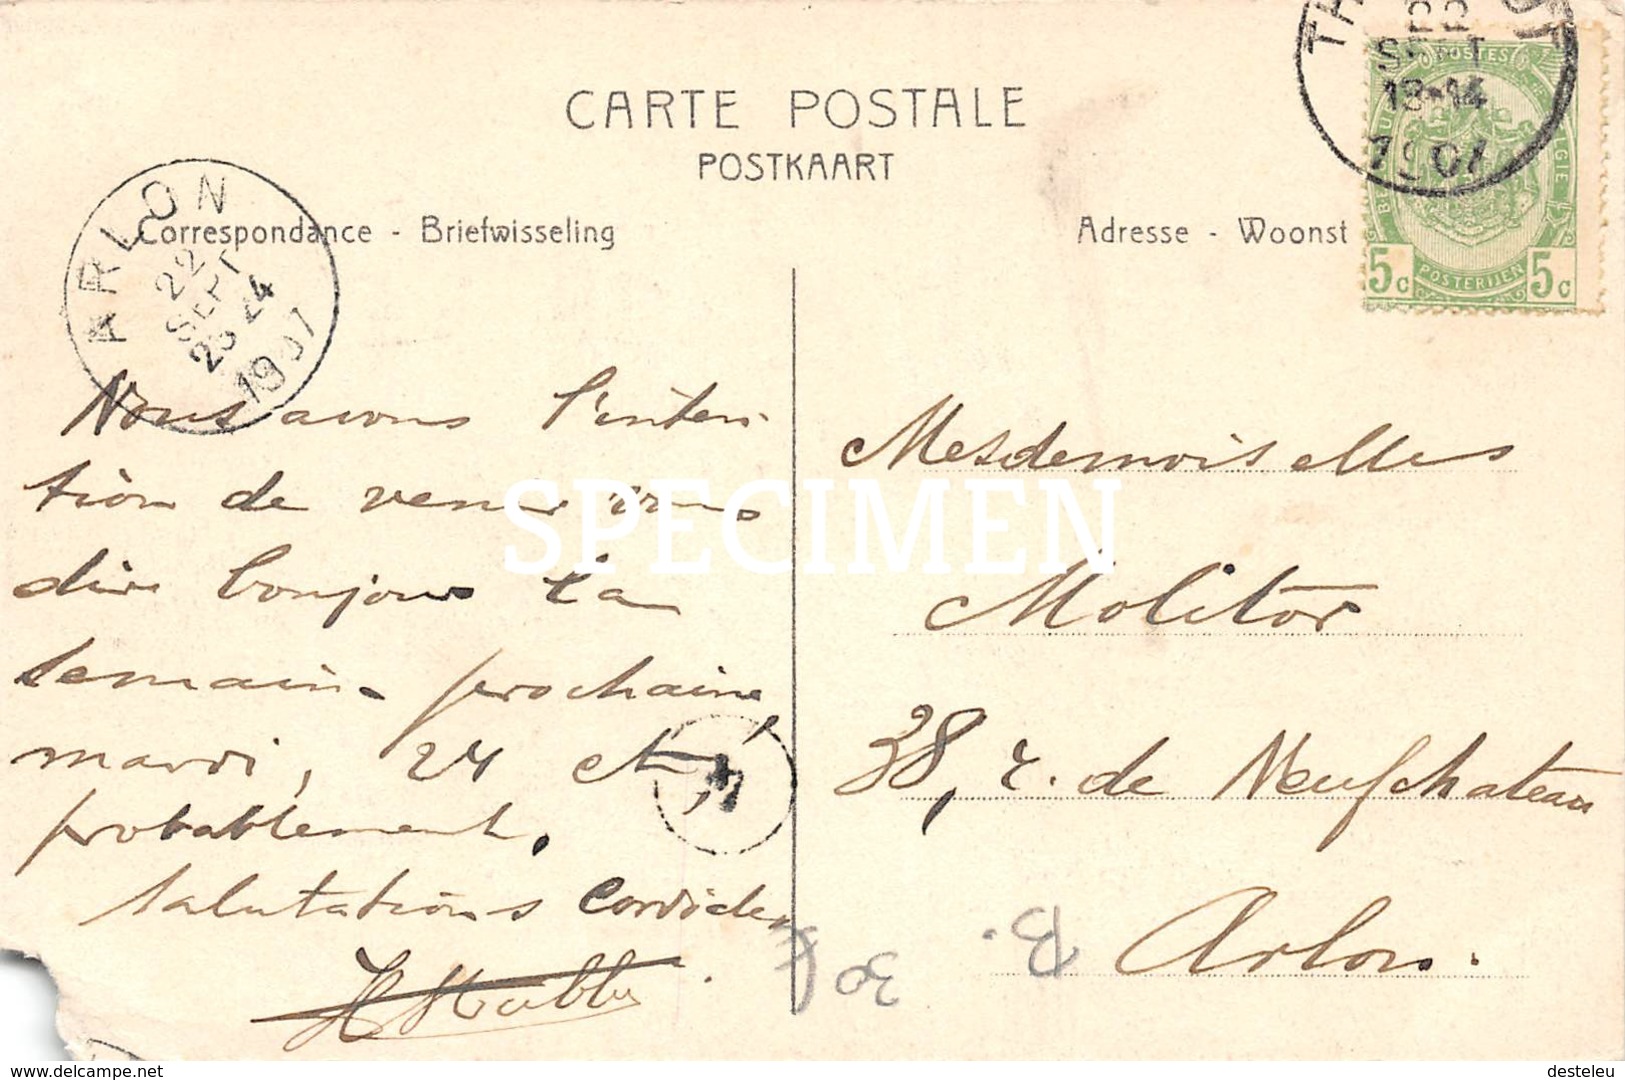 CARTE POSTALE
POSTKAART
Correspondance - Briefwisseling
Adresse - Woonst
ARLON
22
SEPT
23-24
1907
TH
SEPT
13-14
1907
POSTES
POSTERIJEN
5c
5c
Nous avons l'inten-
tion de venir vous
dire bonjour la
semaine prochaine
mardi, 24 ct
probablement.
Salutations cordiales
Mesdemoiselles
Molitor
38, r. de Neufchateau
Arlon.
30 F
B.
SPECIMEN
www.delcampe.net
desteleu